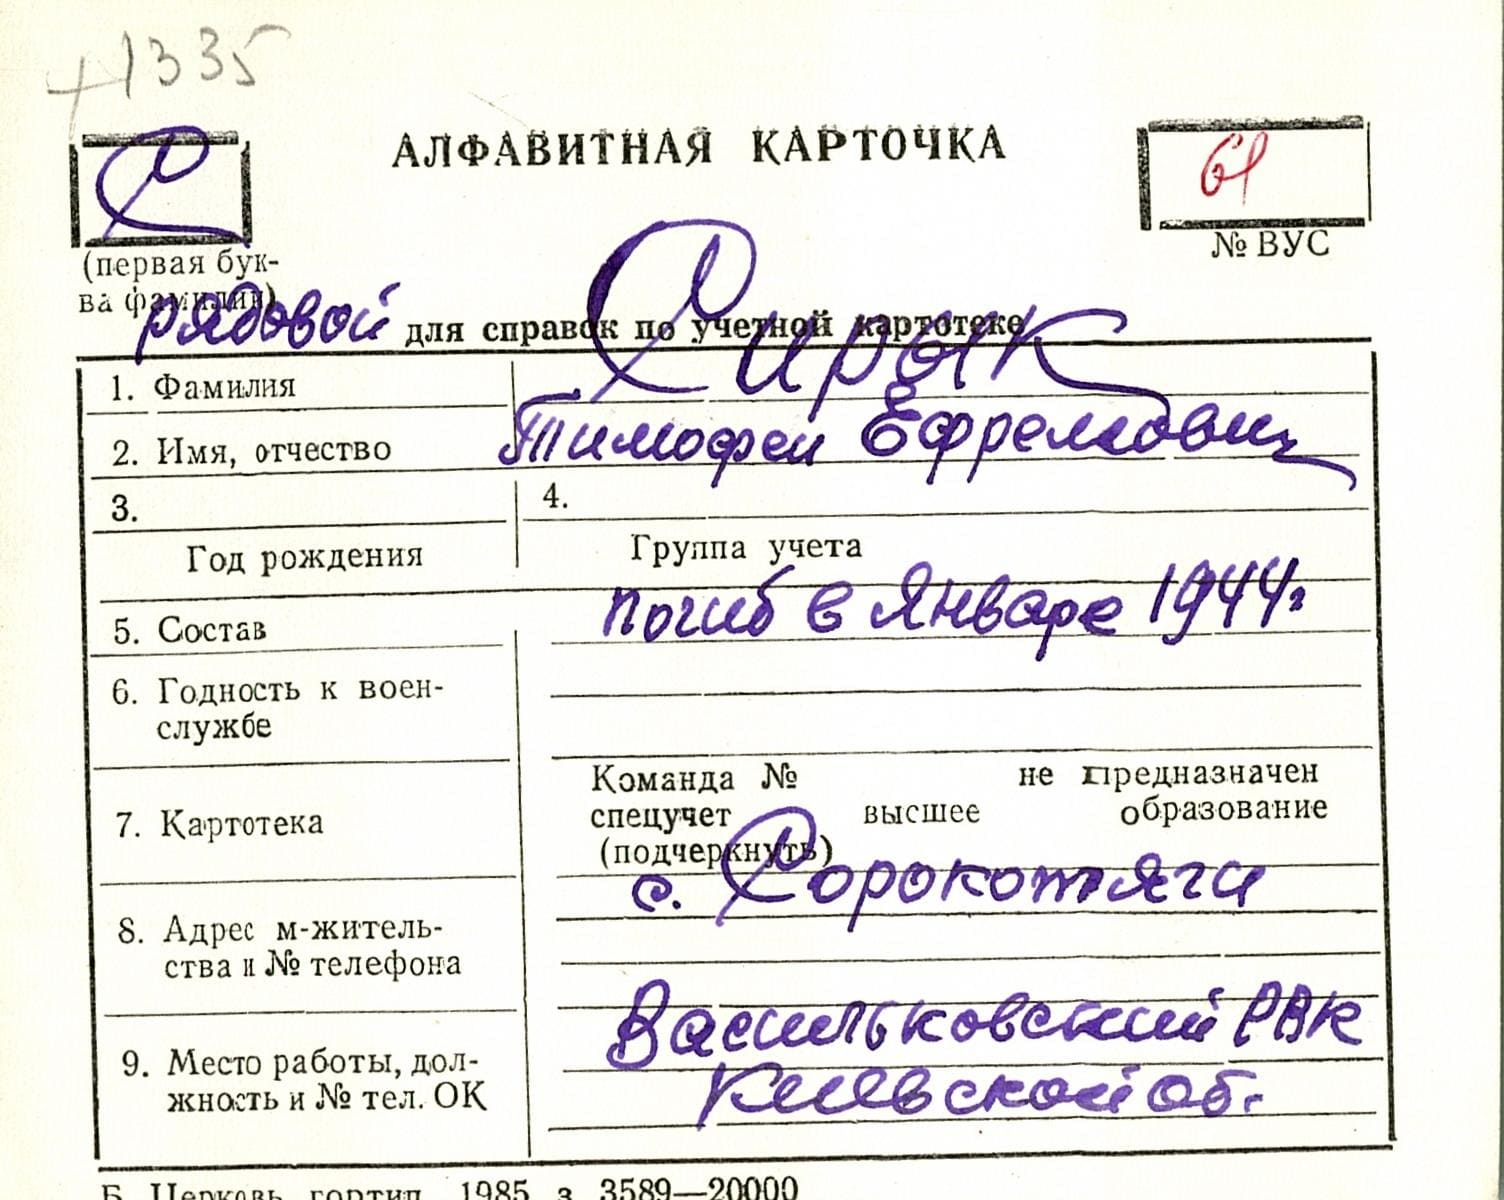 1335
С
АЛФАВИТНАЯ КАРТОЧКА
61
№ ВУС
(первая бук-
ва фамилии)
рядовой для справок по учетной картотеке
1. Фамилия Сирык
2. Имя, отчество Тимофей Ефремович
3. 4.
Год рождения Группа учета
5. Состав погиб в Январе 1944г
6. Годность к воен-
службе
7. Картотека
Команда № не предназначен
спецучет высшее образование
(подчеркнуть)
с. Сорокотяги
8. Адрес м-житель-
ства и № телефона
Васильковский РВК
9. Место работы, дол-
жность и № тел. ОК
Киевской об.
Б. Церковь гортип. 1985 з. 3589—20000